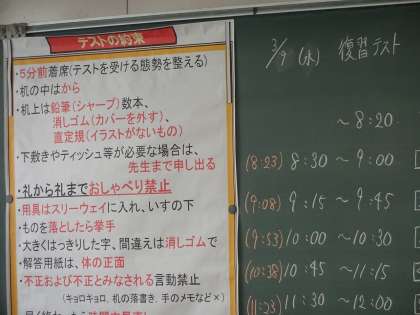 テストの約束
・5分前着席(テストを受ける態勢を整える)
・机の中はから
・机上は鉛筆(シャープ)数本、
消しゴム(カバーを外す)、
直定規(イラストがないもの)
・下敷きやティッシュ等が必要な場合は、
先生まで申し出る
・礼から礼までおしゃべり禁止
・用具はスリーウェイに入れ、いすの下
・ものを落としたら挙手
・大きくはっきりした字、間違えは消しゴムで
・解答用紙は、体の正面
・不正および不正とみなされる言動禁止
(キョロキョロ、机の落書き、手のメモなど×)
3/9 (水) 復習テスト
～8:20
(8:23) 8:30 ～ 9:00
(9:08) 9:15 ～ 9:45
(9:53) 10:00 ～ 10:30
(10:38) 10:45 ～ 11:15
(11:23) 11:30 ～ 12:00